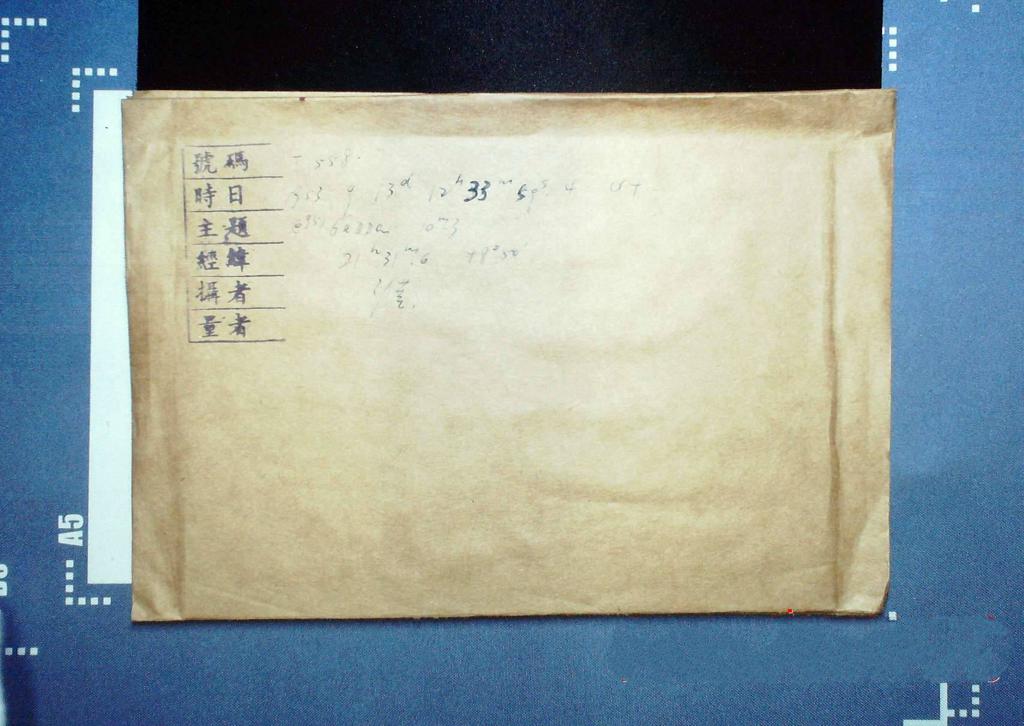 號碼 T 558.
時日 1953 9 13ᵈ 12ʰ 33ᵐ 59ˢ.4 UT
主題
經緯 21ʰ31ᵐ.6 +8°50'
攝者
量者
A5